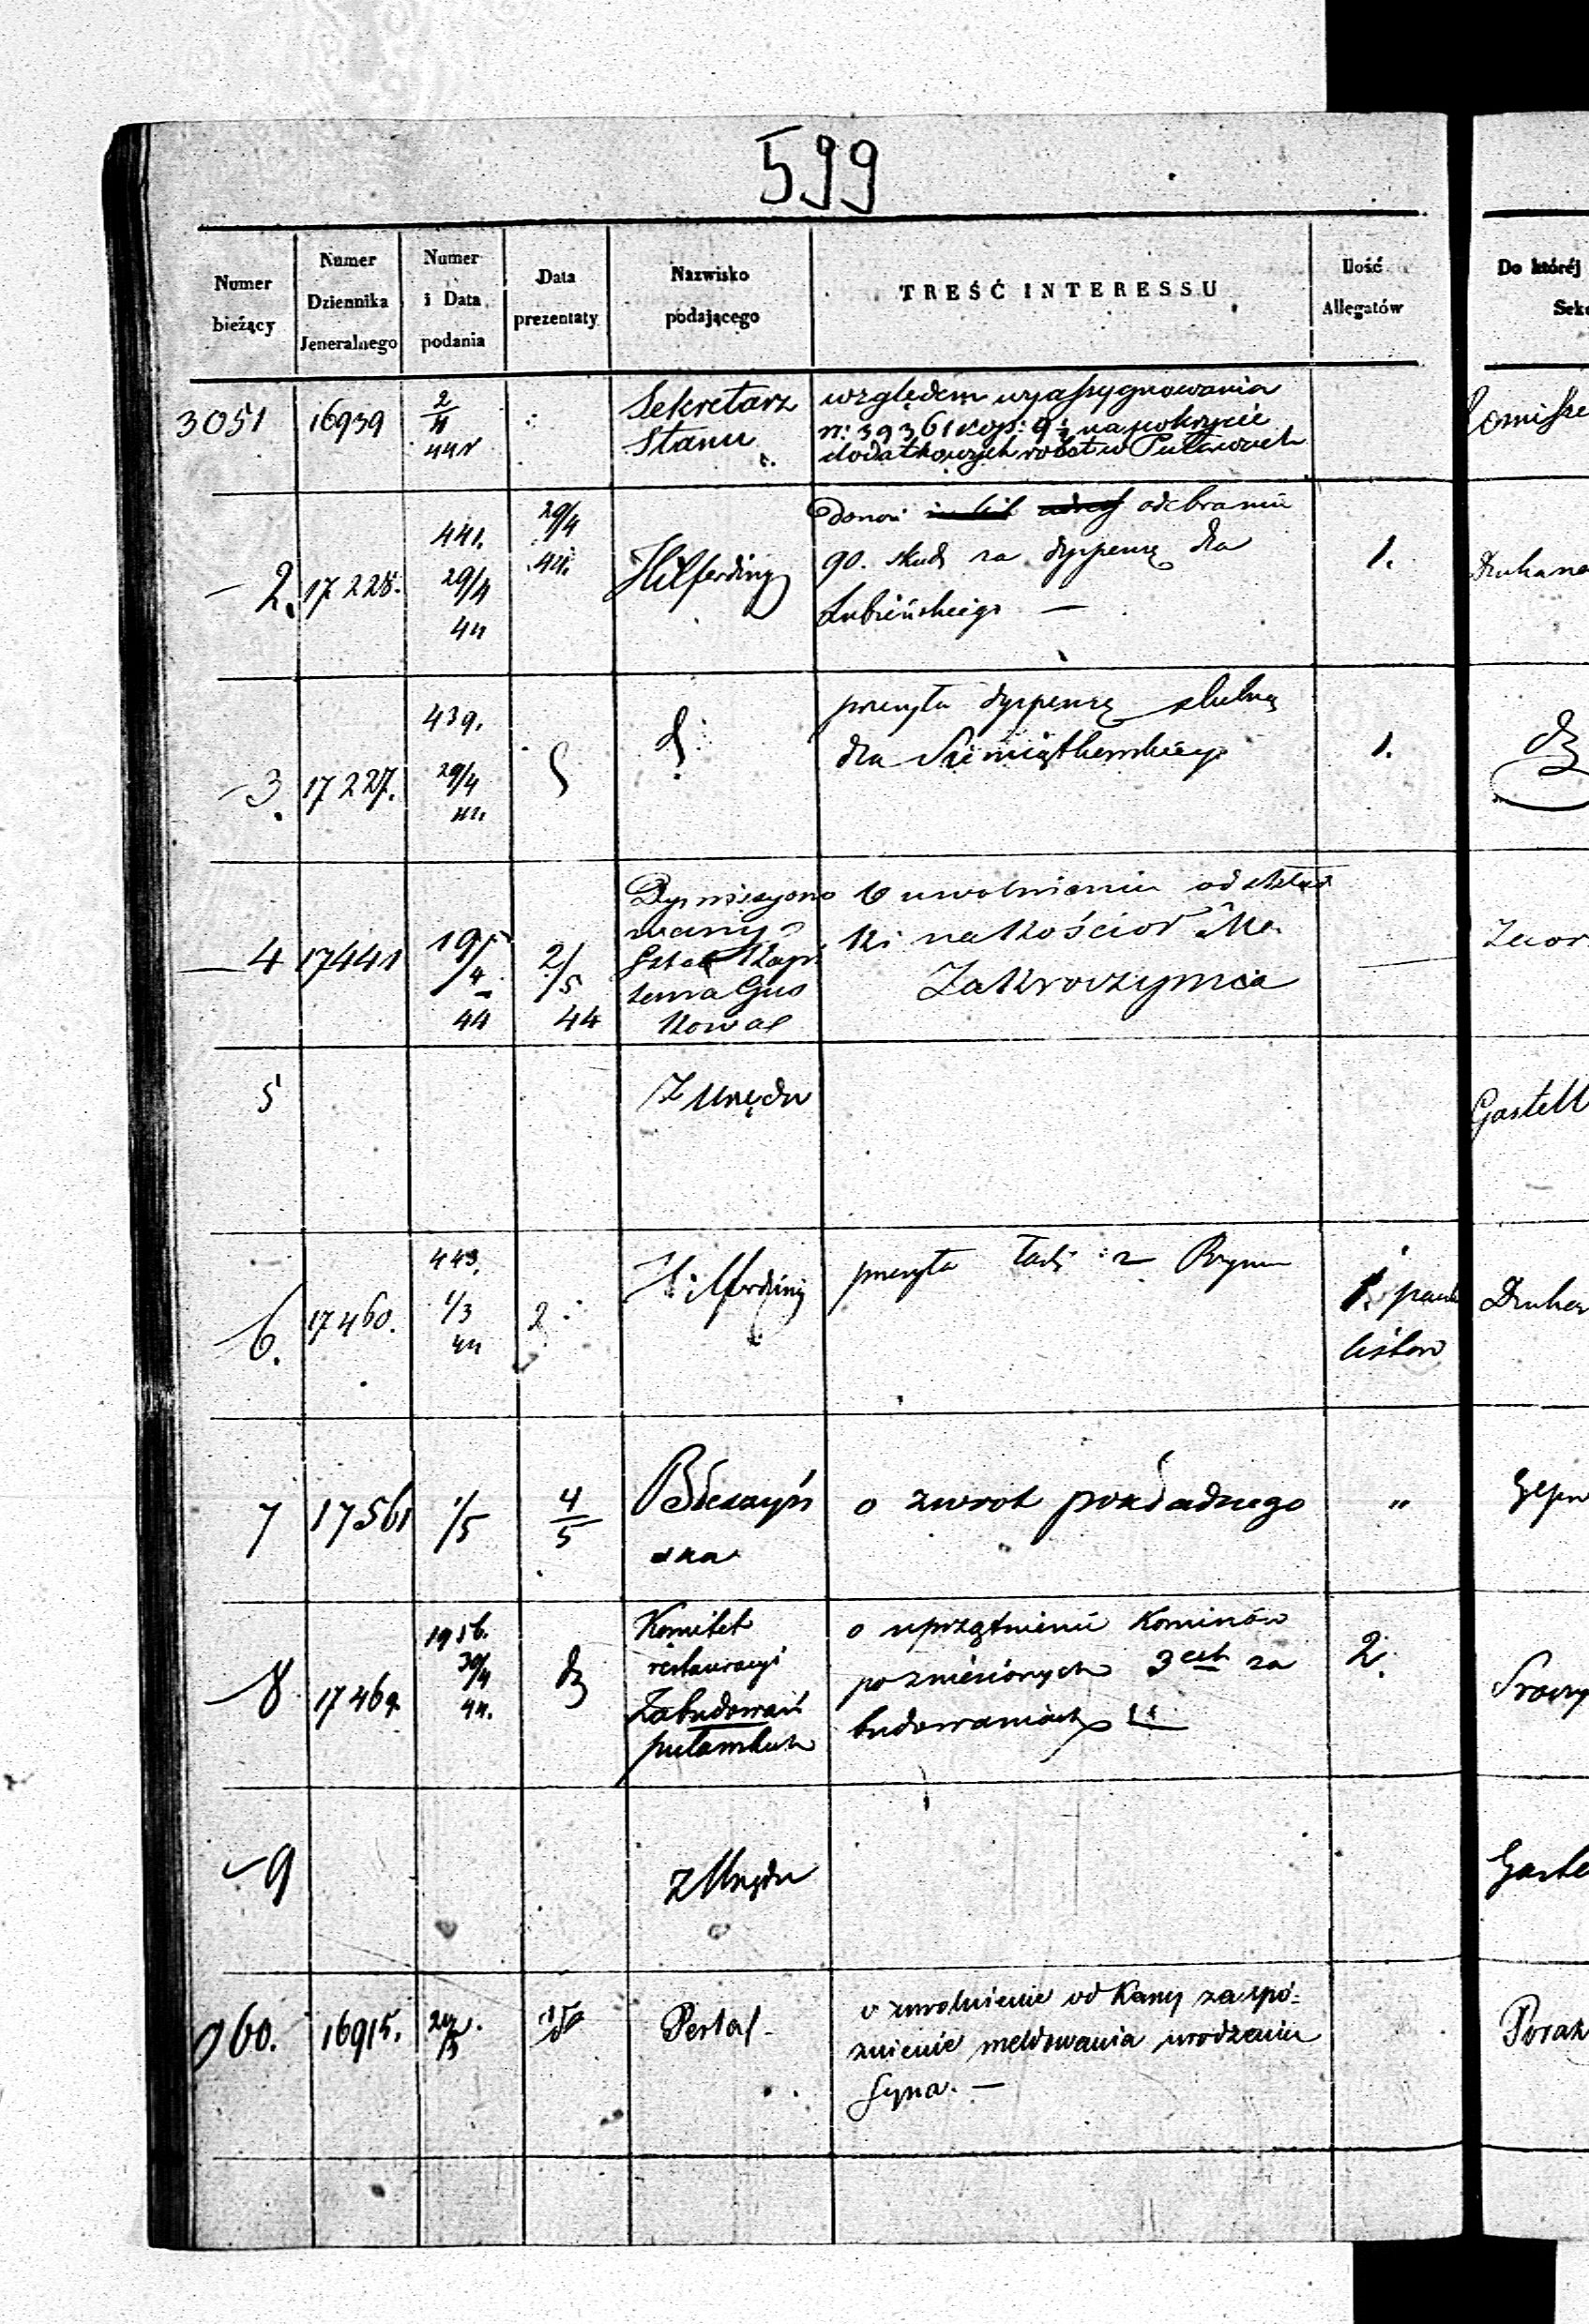 599
Numer bieżący
Numer Dziennika Jeneralnego
Numer i Data podania
Data prezentaty
Nazwisko podającego
TREŚĆ INTERESSU
Ilość Allegatów
Do któréj
Sek
3051 16939 2/4 441 Sekretarz Stanu
względem wyassygnowania
r: 39361 kop: 9½ na pokrycie
dodatkowych robót w Puławach
2. 17228. 441. 29/4 44 29/4 44. Hilferding
Donosi odebraniu
90. skud za dyspensę dla
Łubieńskiego —
1.
3. 17227. 439. 29/4 44. d:
przesyła dyspensę ślubną
dla
1.
4 17441 195/4 44 2/5 44
Dymissyono
wany
Sztabs Kapi
tana Gus
kowa
O uwolnieniu od skład
ki na kościół M.
Zakroczymia
5 Z Urzędu
6. 17460. 443. 1/3 44 2 Hilferding
przesyła
z Rzymu
1. listów
7 17561 1/5 4/5 Błeszyń
ska
o zwrot pokładnego
"
8 17464 1956. 30/4 44. Komitet
restauracyi
Zabudowań
puławskich
o uprzątnieniu kominów
po zniesionych 3ech za
budowaniach
2.
9 z Urzędu
060. 16915. Pertal
o uwolnienie od kary za spó-
znienie meldowania urodzenia
syna. —